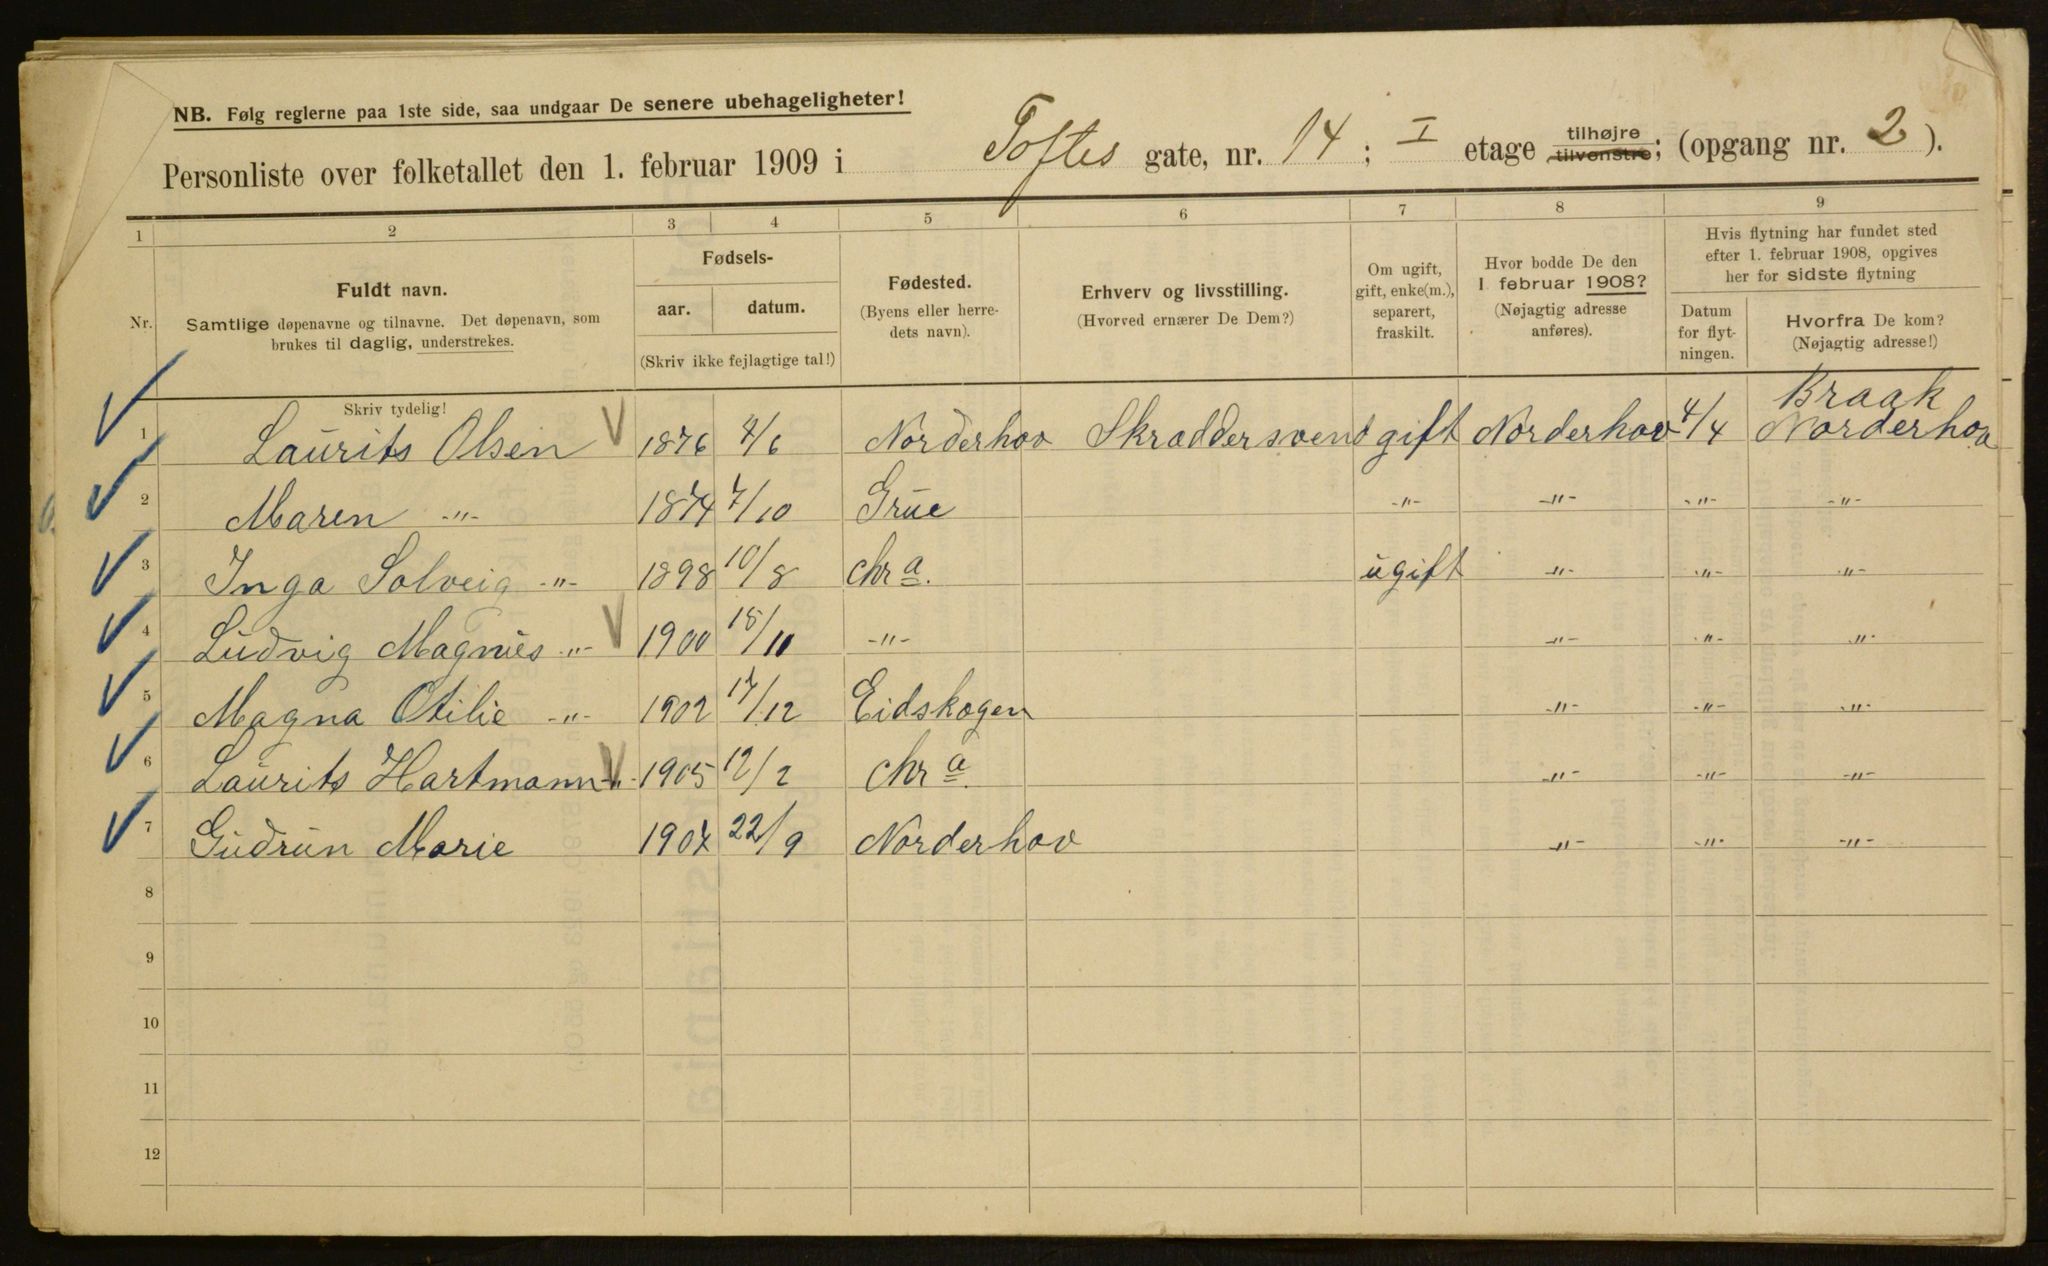 NB. Følg reglerne paa 1ste side, saa undgaar De senere ubehageligheter!
Personliste over folketallet den 1. februar 1909 i Toftes gate, nr. 14 ; I etage tilhøjre tilvenstre; (opgang nr. 2 ).
1 2 3 4 5 6 7 8 9
Nr. Fuldt navn. Samtlige døpenavne og tilnavne. Det døpenavn, som brukes til daglig, understrekes.
Fødsels- aar. datum. (Skriv ikke fejlagtige tal!)
Fødested. (Byens eller herredets navn).
Erhverv og livsstilling. (Hvorved ernærer De Dem?)
Om ugift, gift, enke(m.), separert, fraskilt.
Hvor bodde De den 1 februar 1908? (Nøjagtig adresse anføres).
Hvis flytning har fundet sted efter 1. februar 1908, opgives her for sidste flytning
Datum for flytningen. Hvorfra De kom? (Nøjagtig adresse!)
Skriv tydelig! Braak
1 Laurits Olsen 1876 4/6 Norderhov Skræddersvend gift Norderhov 4/4 Norderhov
2 Maren -"- 1874 7/10 Grue -"- -"- -"- -"-
3 Inga Solveig -"- 1898 10/8 Chr a. ugift -"- -"- -"-
4 Ludvig Magnus -"- 1900 /11 -"- -"- -"- -"-
5 Magna Otilie -"- 1902 17/12 Eidskogen -"- -"- -"-
6 Laurits Hartmann -"- 1905 12/2 Chr a. -"- -"- -"-
7 Gudrun Marie 1907 22/9 Norderhov -"- -"- -"-
8
9
10
11
12